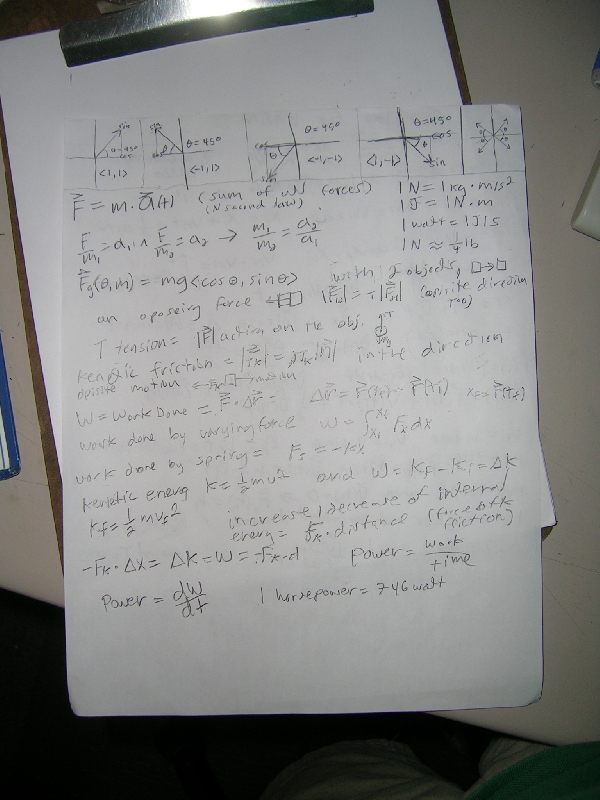 sin θ=45° cos <1,1>
sin θ θ=45° <-1,1>
cos θ sin θ=45° <-1,-1>
θ=45° cos sin <1,-1>
θ θ θ θ
F⃗ = m·a⃗(t) (sum of all forces)
(N second law)
1 N = 1 kg·m/s²
1 J = 1 N·m
1 watt = 1 J/s
1 N ≈ 1/4 lb
F/m₁ = a₁ ∧ F/m₂ = a₂ → m₁/m₂ = a₂/a₁
F⃗g(θ,m) = mg<cosθ, sinθ> (with 2 objects, □→□
an oposeing force (oposite direction too)
T tension = |F⃗| action on the obj. T mg
kenetic friction = |f⃗k| = μk|n⃗| in the direction
opisite motion ← fk □ → motion
W = work Done = F⃗·Δr⃗ = Δr⃗ = r⃗(tf) - r⃗(ti) xf = r⃗(tf)
work done by varying force W = ∫ xi xf Fx dx
work done by spring = Fs = -kx
kenetic energ K = 1/2 mv² and W = Kf - Ki = Δk
Kf = 1/2 mvf² increase/decrease of internal
energy = fk·distance (force of fk friction)
-Fk·Δx = Δk = W = -fk·d power = work/time
Power = dW/dt 1 horsepower = 746 watt